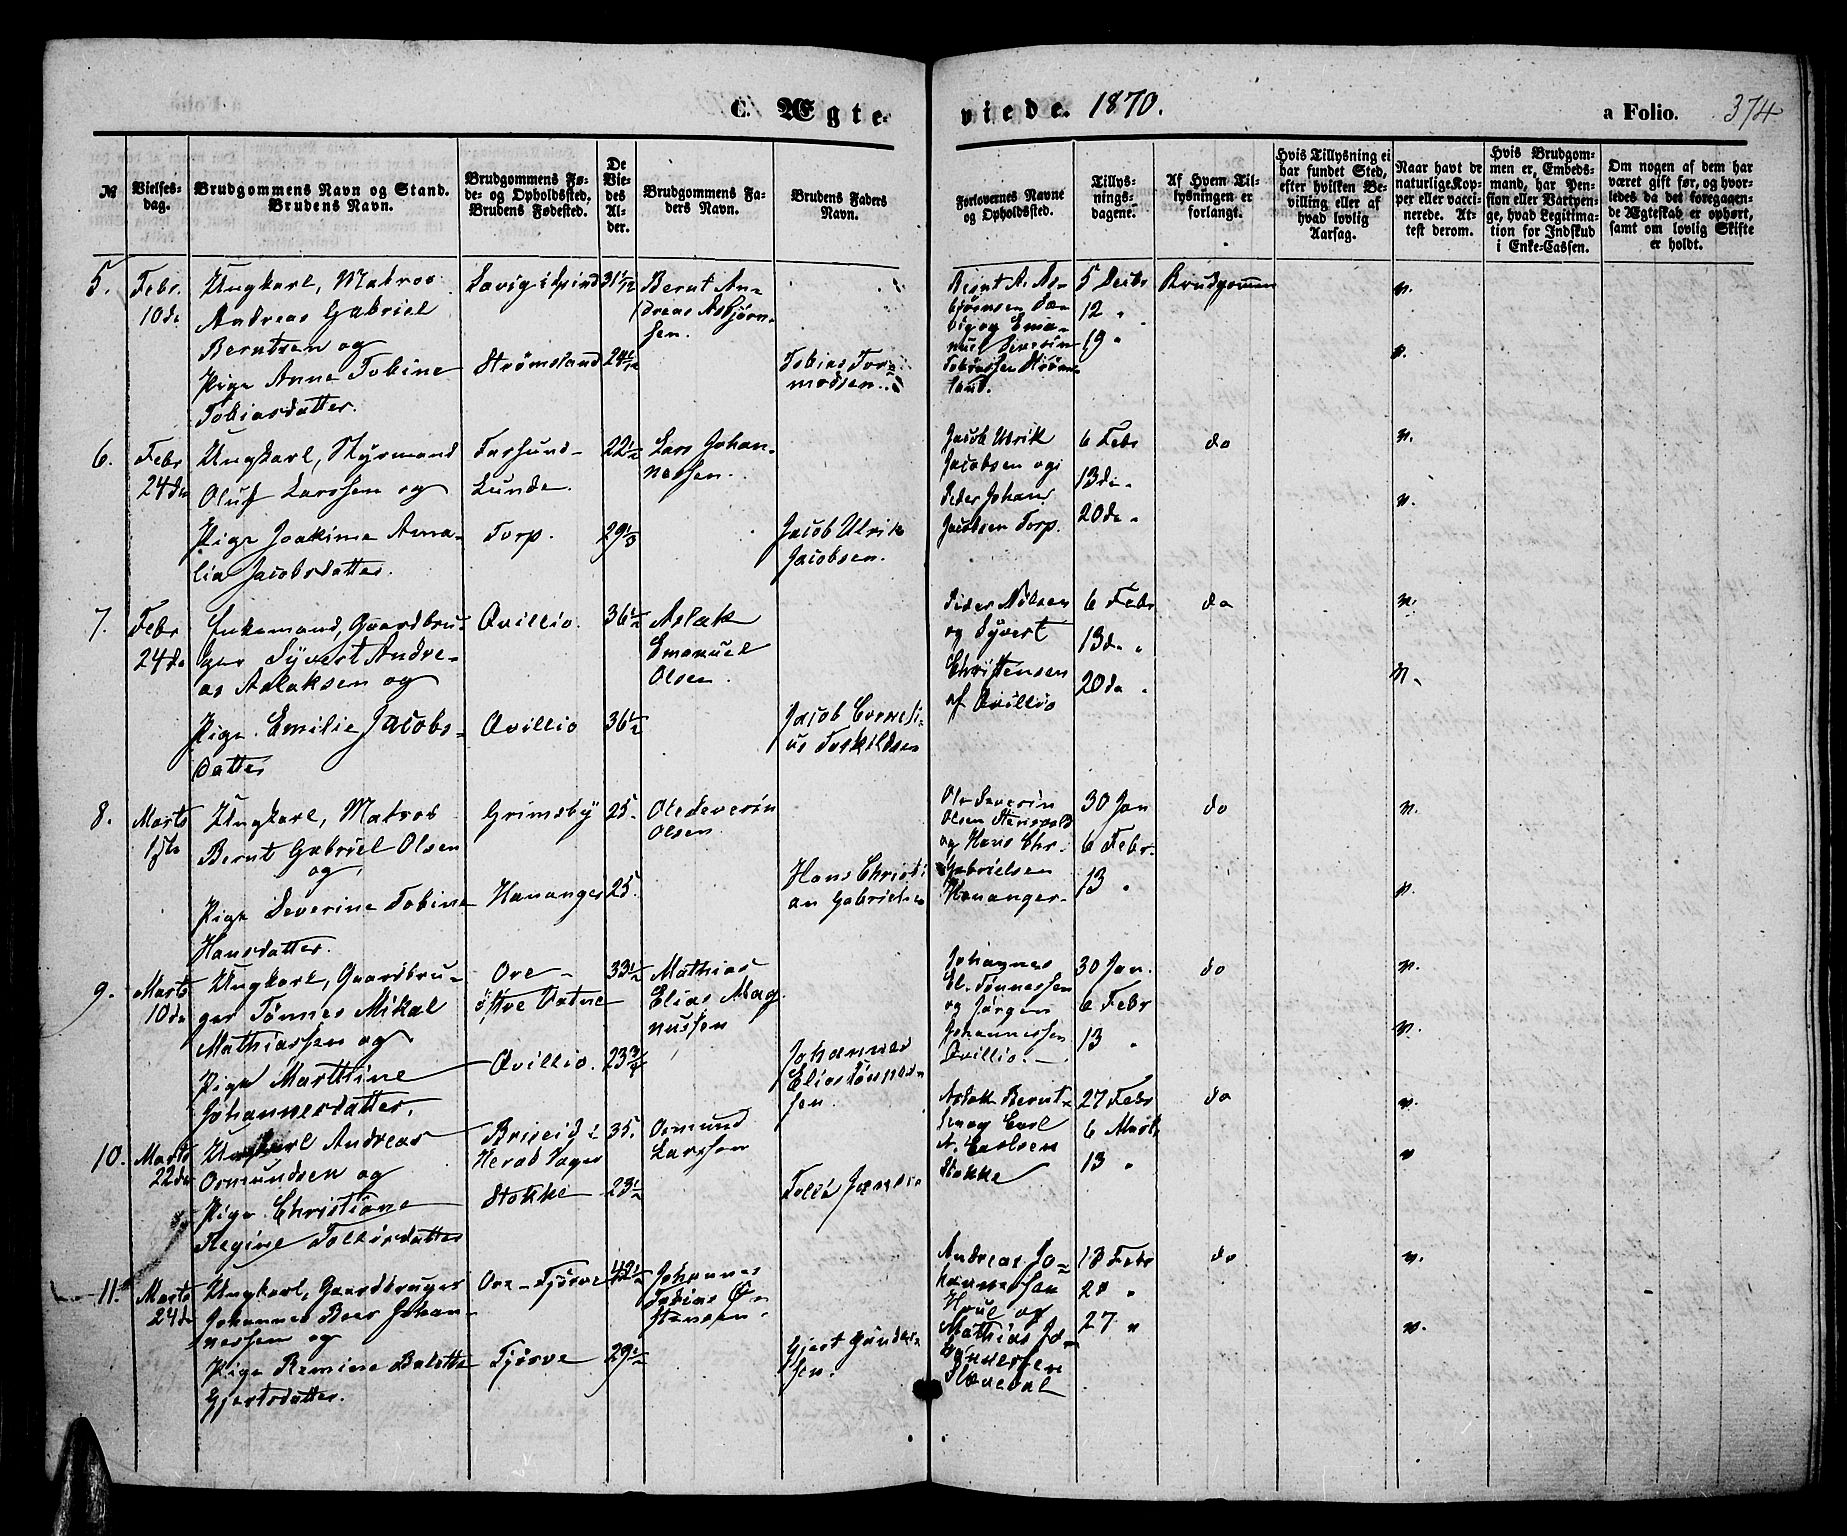 C. Ægte-
viede. 1870.
a Folio. 374
№
Vielses-
dag.
Brudgommens Navn og Stand.
Brudens Navn.
Brudgommens Fø-
de- og Opholdssted.
Brudens Fødested.
De
Vie-
des
Al-
der.
Brudgommens Fa-
ders Navn.
Brudens Faders
Navn.
Forlovernes Navne
og Opholdssted.
Tillys-
nings-
dagene.
Af Hvem Til-
lysningen er
forlangt.
Hvis Tillysning ei
har fundet Sted,
efter hvilken Be-
villing eller af
hvad lovlig
Aarsag.
Naar havt de
naturlige Kop-
per eller vacci-
nerede. At-
test derom.
Hvis Brudgom-
men er, Embeds-
mand, har Pen-
sion eller Vartpen-
ge, hvad Legitima-
tion for Indskud
i Enke-Cassen.
Om nogen af dem har
været gift før, og hvor-
ledes da det foregaaen-
de Ægteskab er ophørt,
samt om lovlig Skifte
er holdt.
5.
Febr.
10de
Ungkarl, Matros
Andreas Gabriel
Berntsen og
Pige Anne Tobine
Tobiasdatter.
Lavig i Spind
Strømsland
31 1/12
24 1/12
Bernt An-
dreas Asbjørn-
sen.
Tobias Tor-
modsen.
Bernt A. As-
bjørnsen La-
vig og Ema-
nuel Severin
Tobiassen Strøms-
land.
5 Decbr
12 "
19 "
Brudgommen
v.
v.
6.
Febr
24de
Ungkarl, Styrmand
Oluf Larssen og
Pige Joakime Ama-
lia Jacobsdatter.
Farsund-
Lunde.
Torp.
22 1/2
29 1/3
Lars Johan-
nessen.
Jacob Ulrik
Jacobsen.
Jacob Ulrik
Jacobsen og
Peder Johan
Jacobsen Torp.
6 Febr
13de "
20de "
do
v.
v.
7.
Febr
24de
Enkemand, Gaardbru-
ger Syvert Andre-
as Aslaksen og
Pige Emilie Jacobs-
datter
Ovillio.
Ovillio
36 1/2
36 1/2
Aslak
Emanuel
Olsen.
Jacob Corneli-
us Torkildsen
Peder Nilsen
og Syvert
Christensen
af Ovillio
6 Febr
13de "
20de "
do
v.
v.
8.
Marts
1ste
Ungkarl, Matros
Bernt Gabriel Olsen
og
Pige Severine Tobine
Hansdatter.
Grimsby
Hananger
25.
25.
Ole Severin
Olsen.
Hans Christi-
an Gabrielsen
Ole Severin
Olsen
og Hans Chr.
Gabrielsen
Hananger.
30 Jan
6 Febr.
13 "
do
v.
v.
9.
Marts
10de
Ungkarl, Gaardbru-
ger Tønnes Mikal
Mathiassen og
Pige Marthine
Johannesdatter.
Ore-
østre Vatne
Ovillio.
33 1/2
23 3/4
Mathias
Elias Mag-
nussen
Johannes
Elias Tønnes-
sen.
Johannes
El. Tønnessen
og Jørgen
Johannessen
Ovillio.
30 Jan.
6 Febr
13 "
do
v.
v.
10.
Marts
22de
Ungkarl Andreas
Osmundsen og
Pige Christiane
Regine Tollisdatter
Briseid i
Herad Sogn
Stokke
35.
23 1/2
Osmund
Larssen
Aslak Bernt-
sen og Carl
A. Carlsen
Stokke
27 Febr
6 Marts
13 "
do
v.
v
11.
Marts
24de
Ungkarl, Gaardbruger
Johannes Beer Johan-
nessen og
Pige Remine Balette
Gjertsdatter.
Ore-Tjørve
Tjørve
42 1/2
29 1/2
Johannes
Tobias Øi-
stensen.
Gjert Gunder-
sen.
Andreas Jo-
hannessen
Huul og
Mathias Jo-
hannessen
Slævdal
13 Febr
20 "
27 "
do
v.
v.